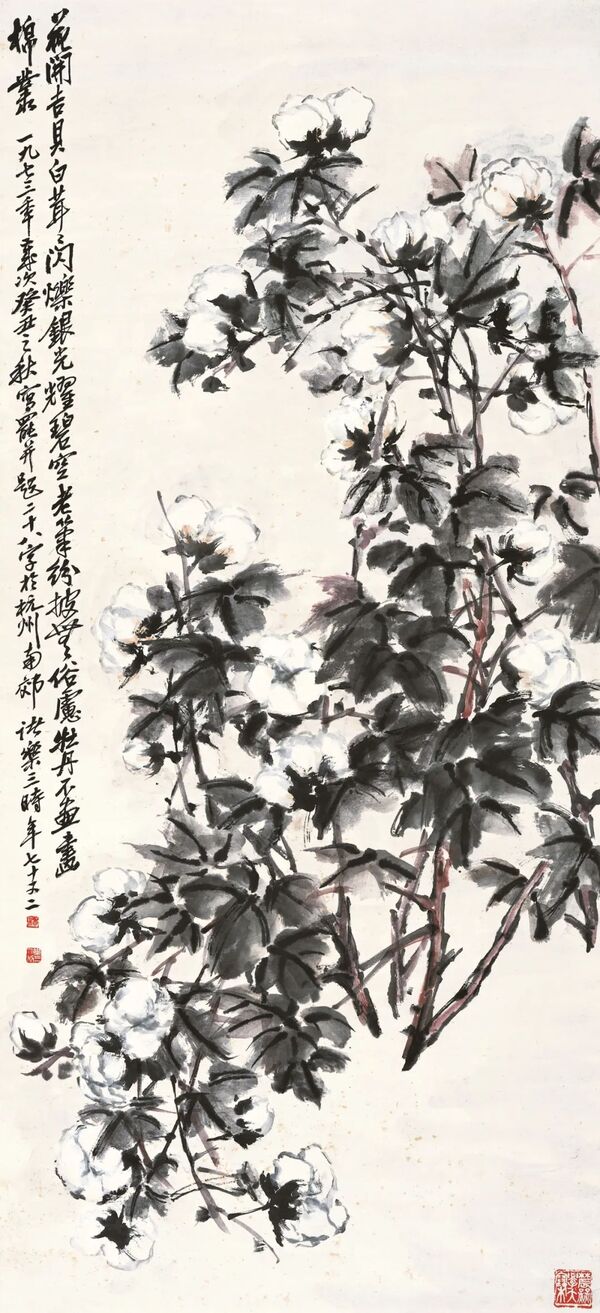 花開吉貝白茸茸閃爍銀光耀碧空老筆紛披無俗慮牡丹不畫畫
棉叢 一九七三年歲次癸丑之秋寫罷并題二十八字於杭州南郊 諸樂三時年七十又二